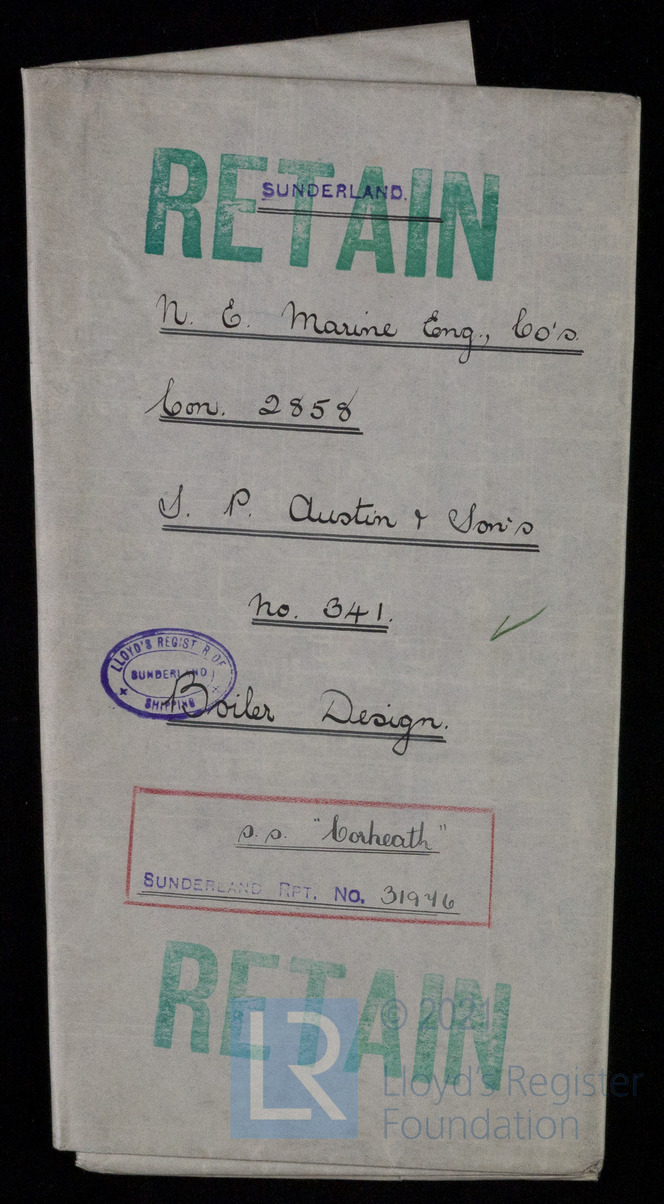 RETAIN
SUNDERLAND.
N. E. Marine Eng., Co's.
Con. 2858
S. P. Austin & Son's
No. 341.
LLOYD'S REGISTER OF
SUNDERLAND
SHIPPING
Boiler Design.
s.s. "Corheath"
SUNDERLAND RPT. No. 31946
RETAIN
LR
© 2021
Lloyd's Register
Foundation